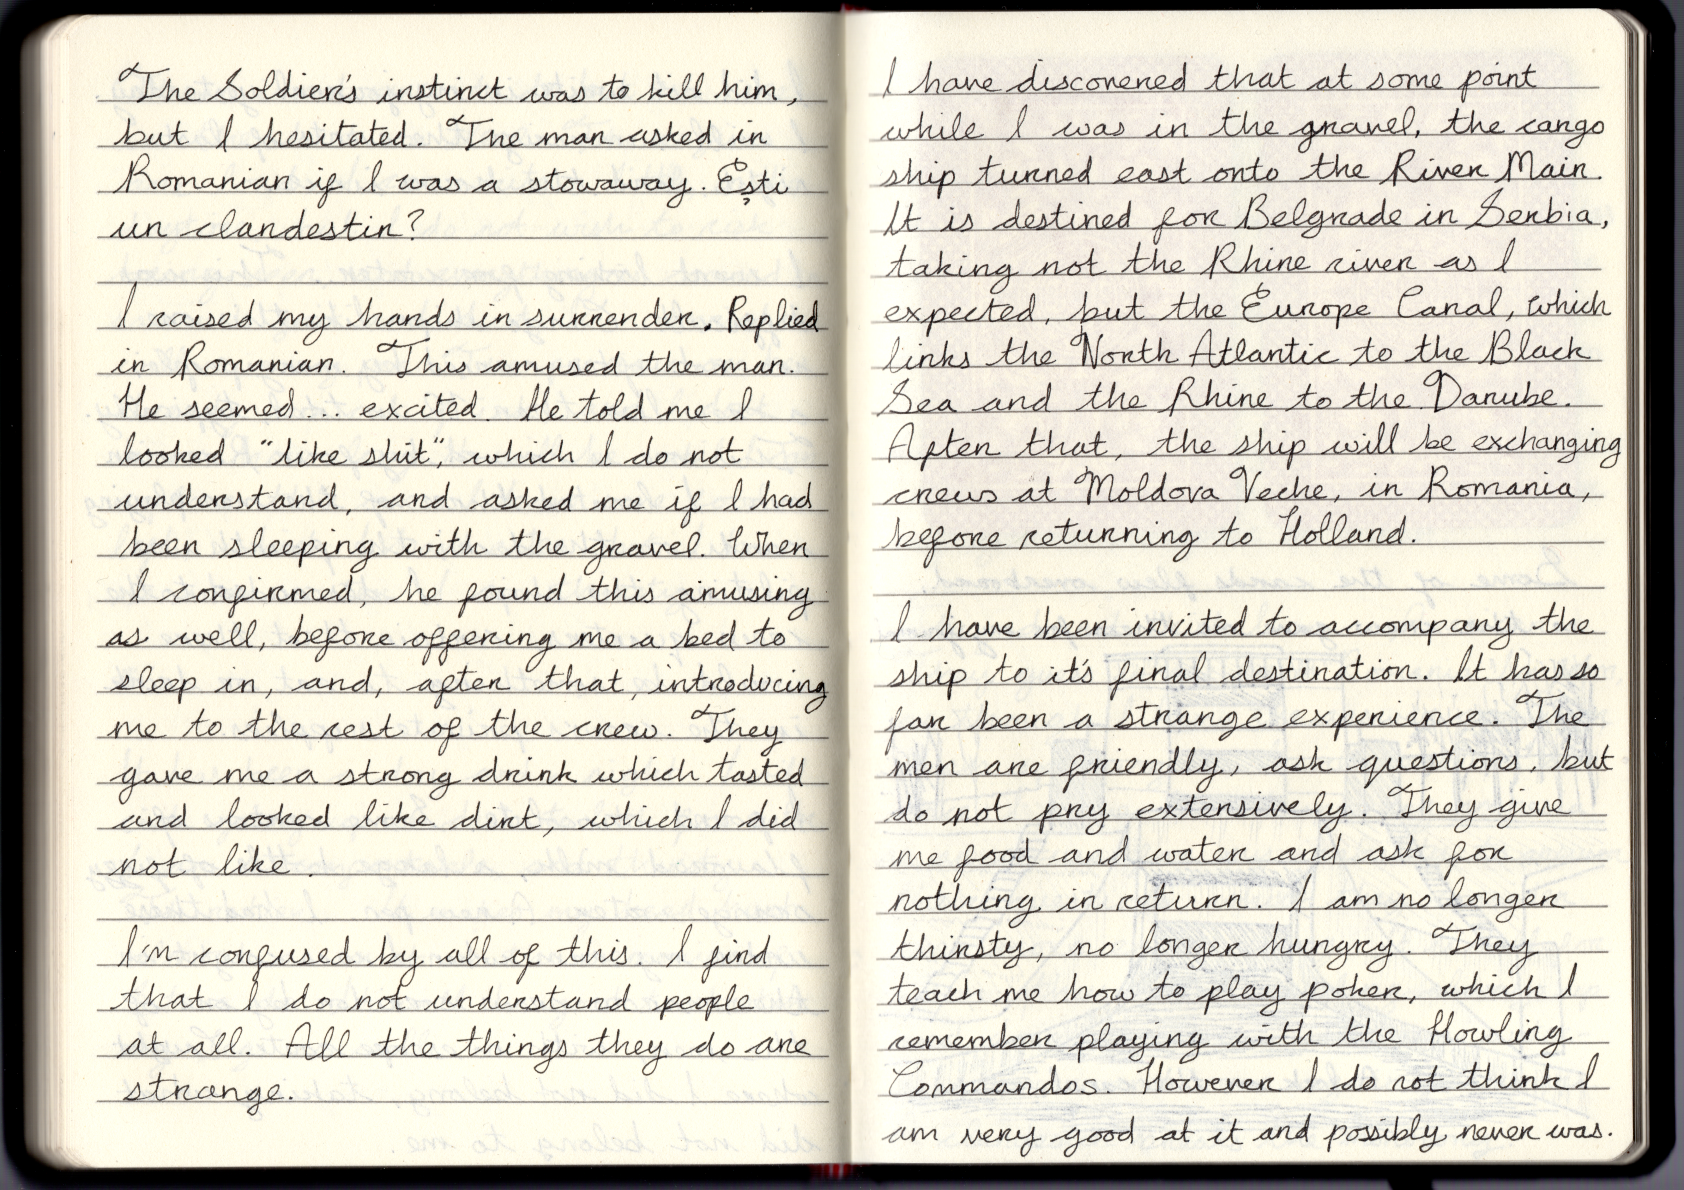 The Soldier's instinct was to kill him,
but I hesitated. The man asked in
Romanian if I was a stowaway. Ești
un clandestin?
I raised my hands in surrender. Replied
in Romanian. This amused the man.
He seemed... excited. He told me I
looked "like shit", which I do not
understand, and asked me if I had
been sleeping with the gravel. When
I confirmed, he found this amusing
as well, before offering me a bed to
sleep in, and, after that, introducing
me to the rest of the crew. They
gave me a strong drink which tasted
and looked like dirt, which I did
not like.
I'm confused by all of this. I find
that I do not understand people
at all. All the things they do are
strange.
I have discovered that at some point
while I was in the gravel, the cargo
ship turned east onto the River Main.
It is destined for Belgrade in Serbia,
taking not the Rhine river as I
expected, but the Europe Canal, which
links the North Atlantic to the Black
Sea and the Rhine to the Danube.
After that, the ship will be exchanging
crews at Moldova Veche, in Romania,
before returning to Holland.
I have been invited to accompany the
ship to it's final destination. It has so
far been a strange experience. The
men are friendly, ask questions, but
do not pry extensively. They give
me food and water and ask for
nothing in return. I am no longer
thirsty, no longer hungry. They
teach me how to play poker, which I
remember playing with the Howling
Commandos. However I do not think I
am very good at it and possibly never was.